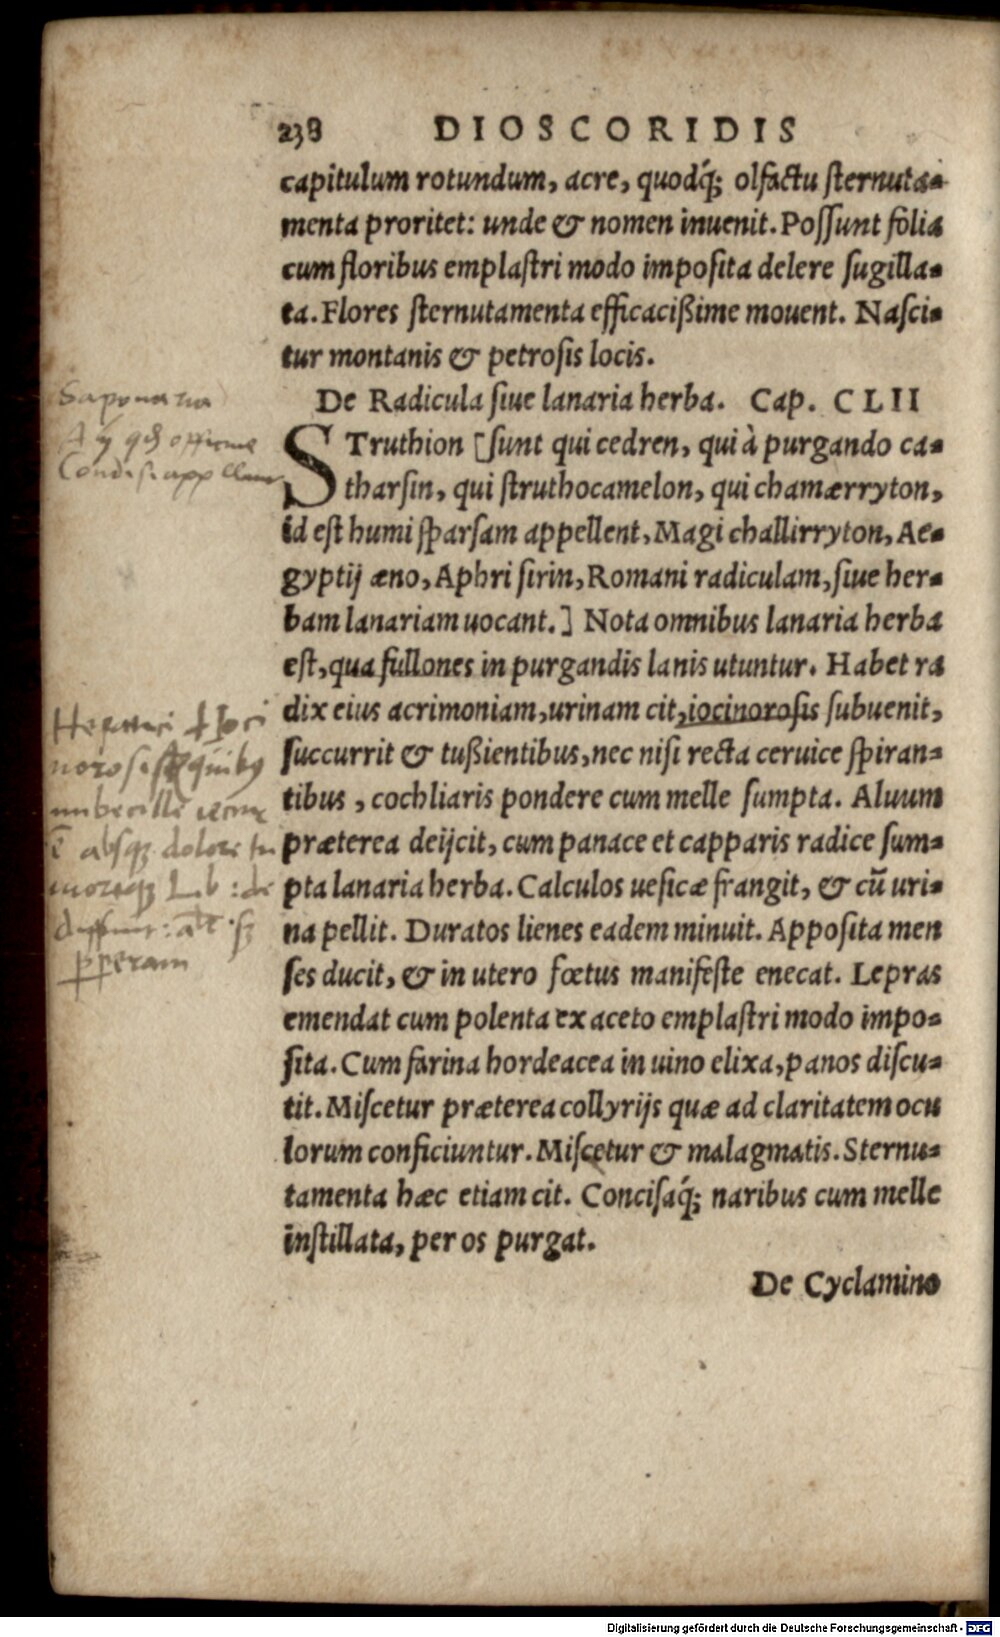 238 DIOSCORIDIS
capitulum rotundum, acre, quodq́; olfactu sternuta-
menta proritet: unde & nomen inuenit. Possunt folia
cum floribus emplastri modo imposita delere sugilla-
ta. Flores sternutamenta efficacißime mouent. Nasci-
tur montanis & petrosis locis.
De Radicula siue lanaria herba. Cap. CLII
STruthion [sunt qui cedren, qui à purgando ca-
tharsin, qui struthocamelon, qui chamærryton,
id est humi sparsam appellent, Magi challirryton, Ae-
gyptij æno, Aphri sirin, Romani radiculam, siue her-
bam lanariam uocant.] Nota omnibus lanaria herba
est, qua fullones in purgandis lanis utuntur. Habet ra
dix eius acrimoniam, urinam cit, iocinorosis subuenit,
succurrit & tußientibus, nec nisi recta ceruice spiran-
tibus, cochliaris pondere cum melle sumpta. Aluum
præterea deijcit, cum panace et capparis radice sum-
pta lanaria herba. Calculos uesicæ frangit, & cū uri-
na pellit. Duratos lienes eadem minuit. Apposita men
ses ducit, & in utero fœtus manifeste enecat. Lepras
emendat cum polenta ex aceto emplastri modo impo-
sita. Cum farina hordeacea in uino elixa, panos discu-
tit. Miscetur præterea collyrijs quæ ad claritatem ocu
lorum conficiuntur. Miscetur & malagmatis. Sternu-
tamenta hæc etiam cit. Concisaq́; naribus cum melle
instillata, per os purgat.
De Cyclamino
Saponaria
officine
quibus
absq; dolore
Digitalisierung gefördert durch die Deutsche Forschungsgemeinschaft - DFG